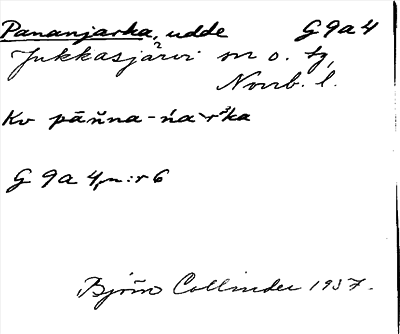 Pananjarka, udde G 9a 4
Jukkasjärvi sn o. tg,
Norrb. l.
Kv pāňna-ńàrˀka
G 9a 4, n:r 6
Björn Collinder 1937.